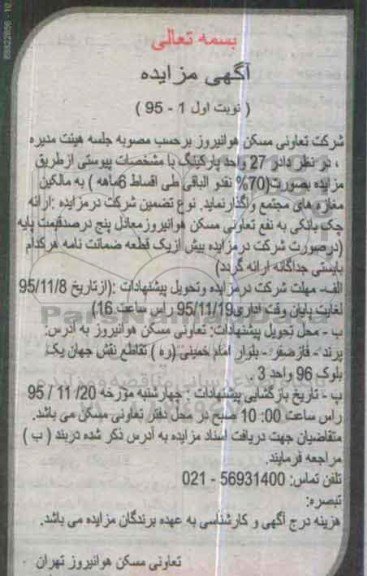 بسمه تعالی
آگهی مزایده
( نوبت اول 1 - 95 )
شرکت تعاونی مسکن هوانیروز برحسب مصوبه جلسه هیئت مدیره
، در نظر دارد 27 واحد پارکینگ با مشخصات پیوستی ازطریق
مزایده بصورت(70% نقدو الباقی طی اقساط 6ماهه ) به مالکین
مغازه های مجتمع واگذارنماید. نوع تضمین شرکت درمزایده :ارائه
چک بانکی به نفع تعاونی مسکن هوانیروزمعادل پنج درصدقیمت پایه
(درصورت شرکت درمزایده بیش ازیک قطعه ضمانت نامه هرکدام
بایستی جداگانه ارائه گردد)
الف- مهلت شرکت درمزایده وتحویل پیشنهادات :(ازتاریخ 95/11/8
لغایت پایان وقت اداری95/11/19 راس ساعت 16)
ب - محل تحویل پیشنهادات: تعاونی مسکن هوانیروز به آدرس:
پرند - فازصفر - بلوار امام خمینی (ره ) تقاطع نقش جهان یک
بلوک 96 واحد 3
پ - تاریخ بازگشایی پیشنهادات : چهارشنبه مورخه 20/ 11 / 95
راس ساعت 00: 10 صبح در محل دفتر تعاونی مسکن می باشد.
متقاضیان جهت دریافت اسناد مزایده به آدرس ذکر شده دربند ( ب )
مراجعه فرمایند.
تلفن تماس: 56931400 - 021
تبصره:
هزینه درج آگهی و کارشناسی به عهده برندگان مزایده می باشد.
تعاونی مسکن هوانیروز تهران